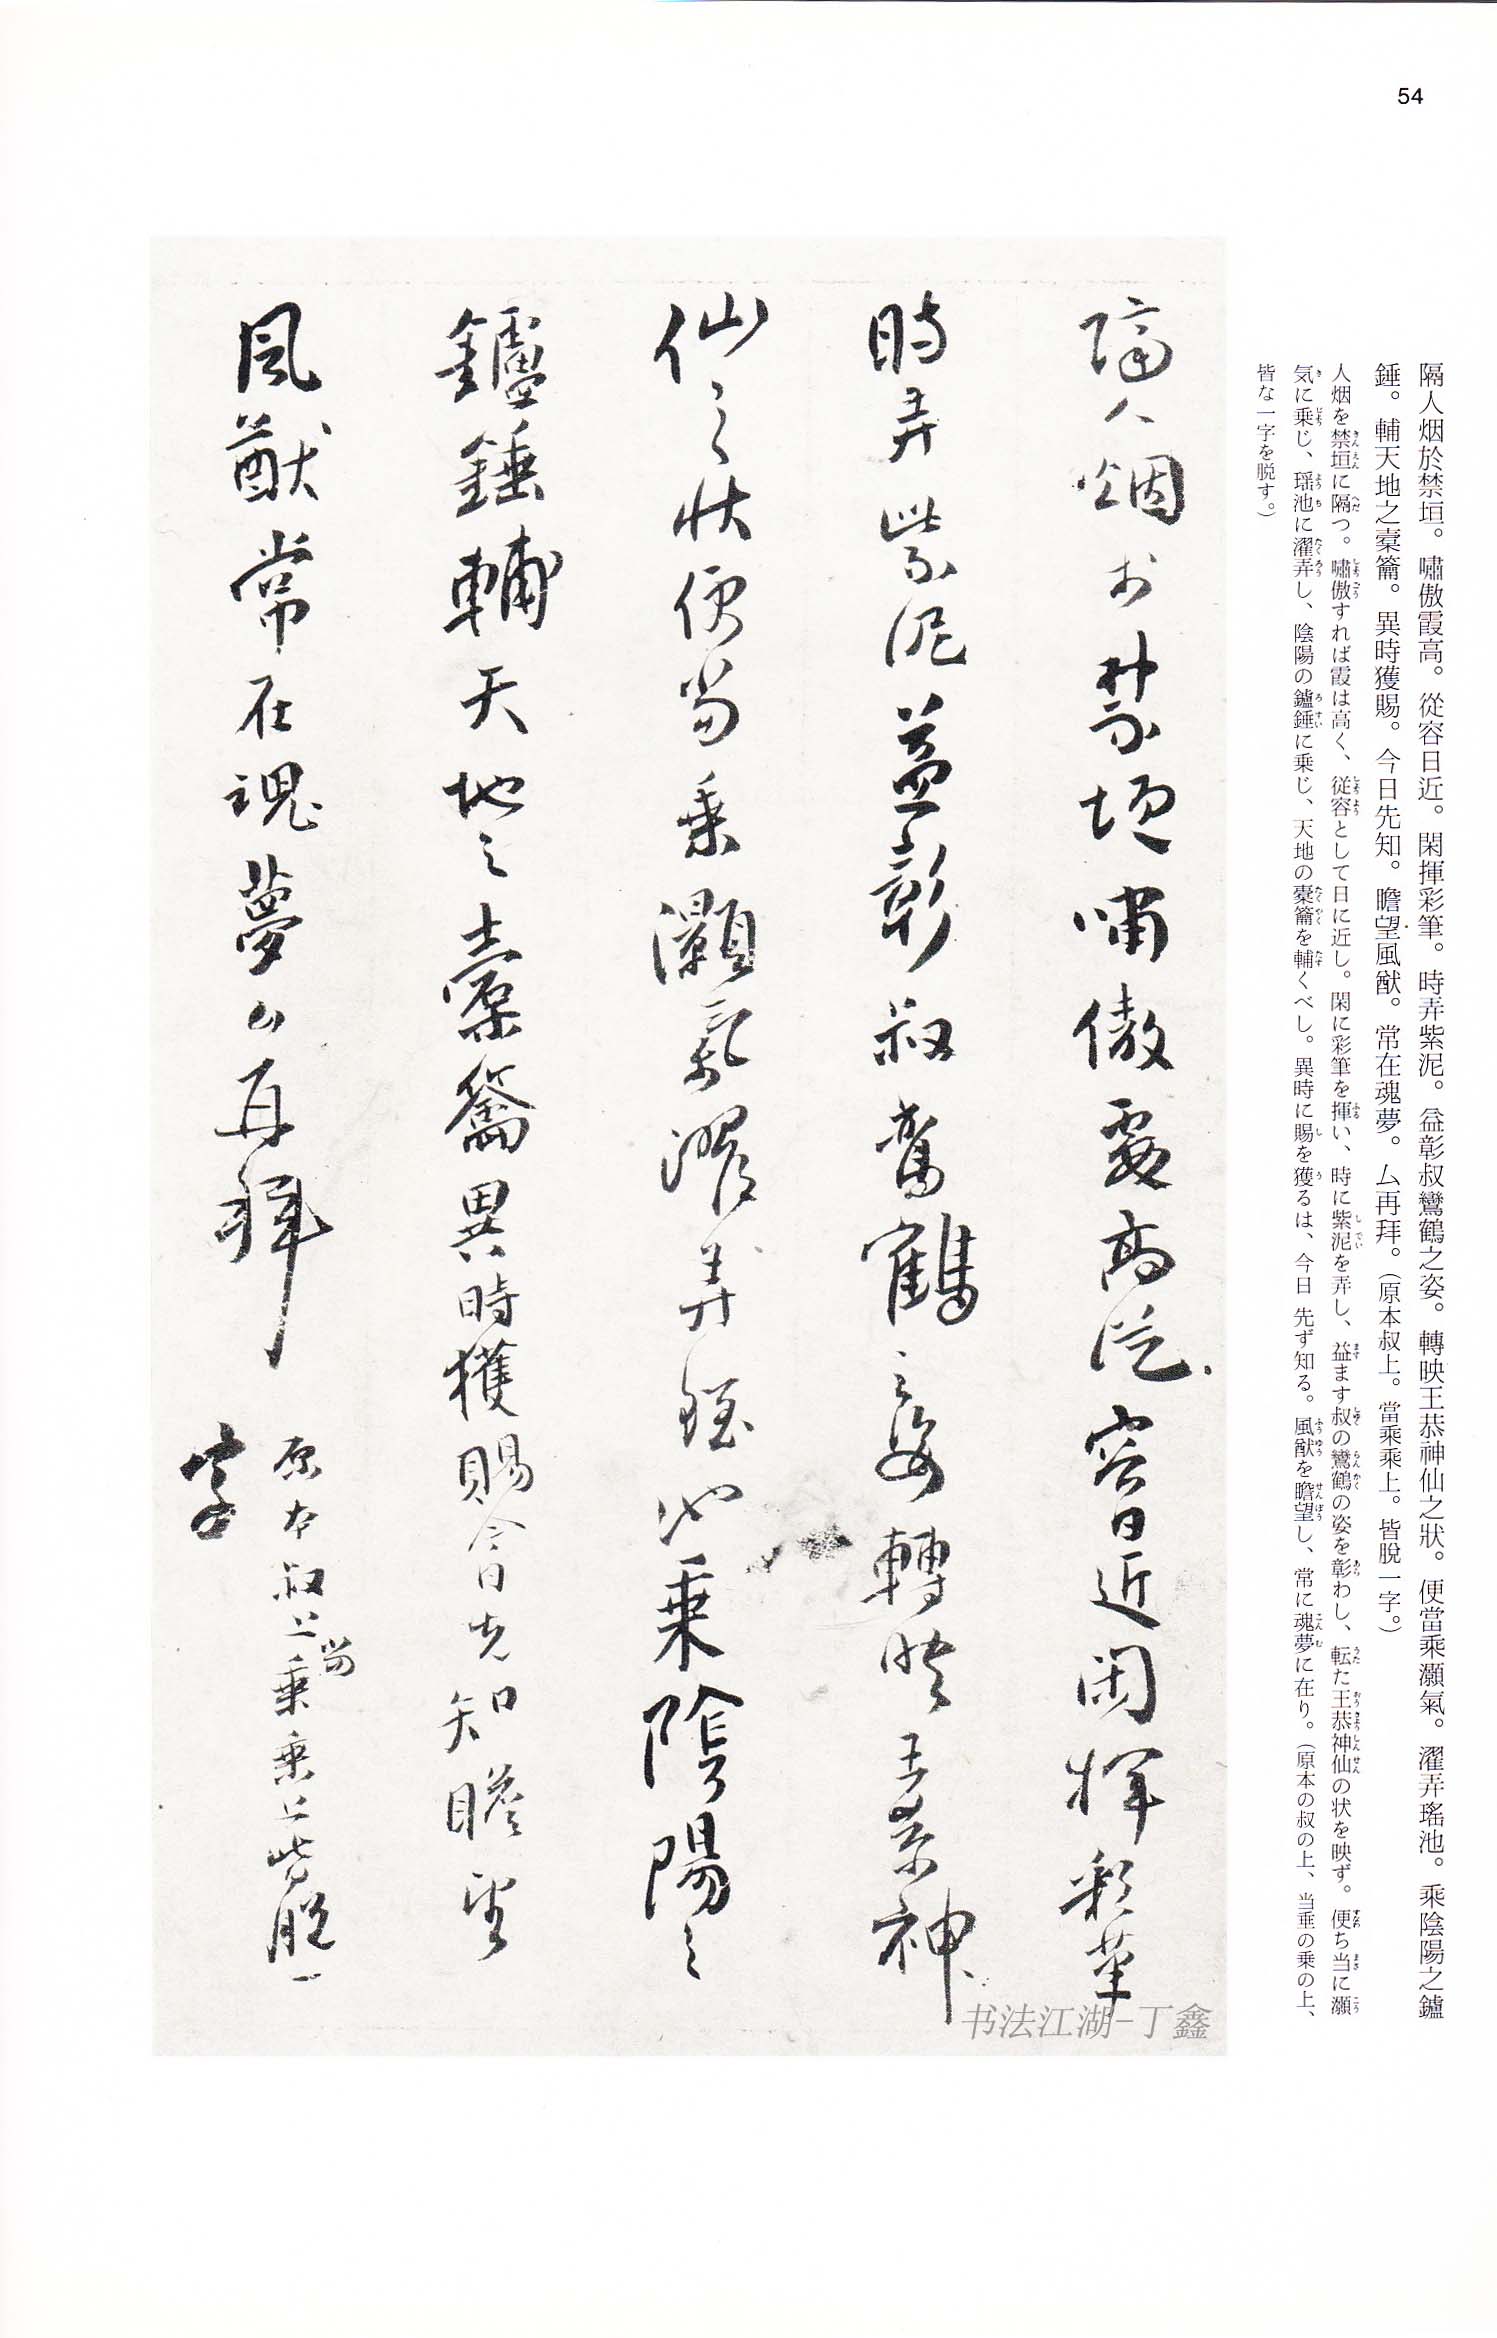 54
隔人烟於禁垣。嘯傲霞高。從容日近。閑揮彩筆。時弄紫泥。益彰叔鸞鶴之姿。轉映王恭神仙之狀。便當乘灝氣。濯弄瑤池。乘陰陽之鑪
錘。輔天地之橐籥。異時獲賜。今日先知。瞻望風猷。常在魂夢。厶再拜。(原本叔上。當乘乘上。皆脫一字。)
人烟を禁垣に隔つ。嘯傲すれば霞は高く、従容として日に近し。閑に彩筆を揮い、時に紫泥を弄し、益ます叔の鸞鶴の姿を彰わし、転た王恭神仙の状を映ず。便ち当に灝
気に乗じ、瑶池に濯弄し、陰陽の鑪錘に乗じ、天地の橐籥を輔くべし。異時に賜を獲るは、今日先ず知る。風猷を瞻望し、常に魂夢に在り。(原本の叔の上、当垂の乗の上、
皆な一字を脱す。)
隔人烟於禁垣嘯傲霞高從容日近閑揮彩筆
時弄紫泥益彰叔鸞鶴之姿轉映王恭神
仙之狀便當乘灝氣濯弄瑤池乘陰陽之
鑪錘輔天地之橐籥異時獲賜今日先知瞻望
風猷常在魂夢厶再拜
原本叔上當乘乘上皆脫一
字
书法江湖-丁鑫